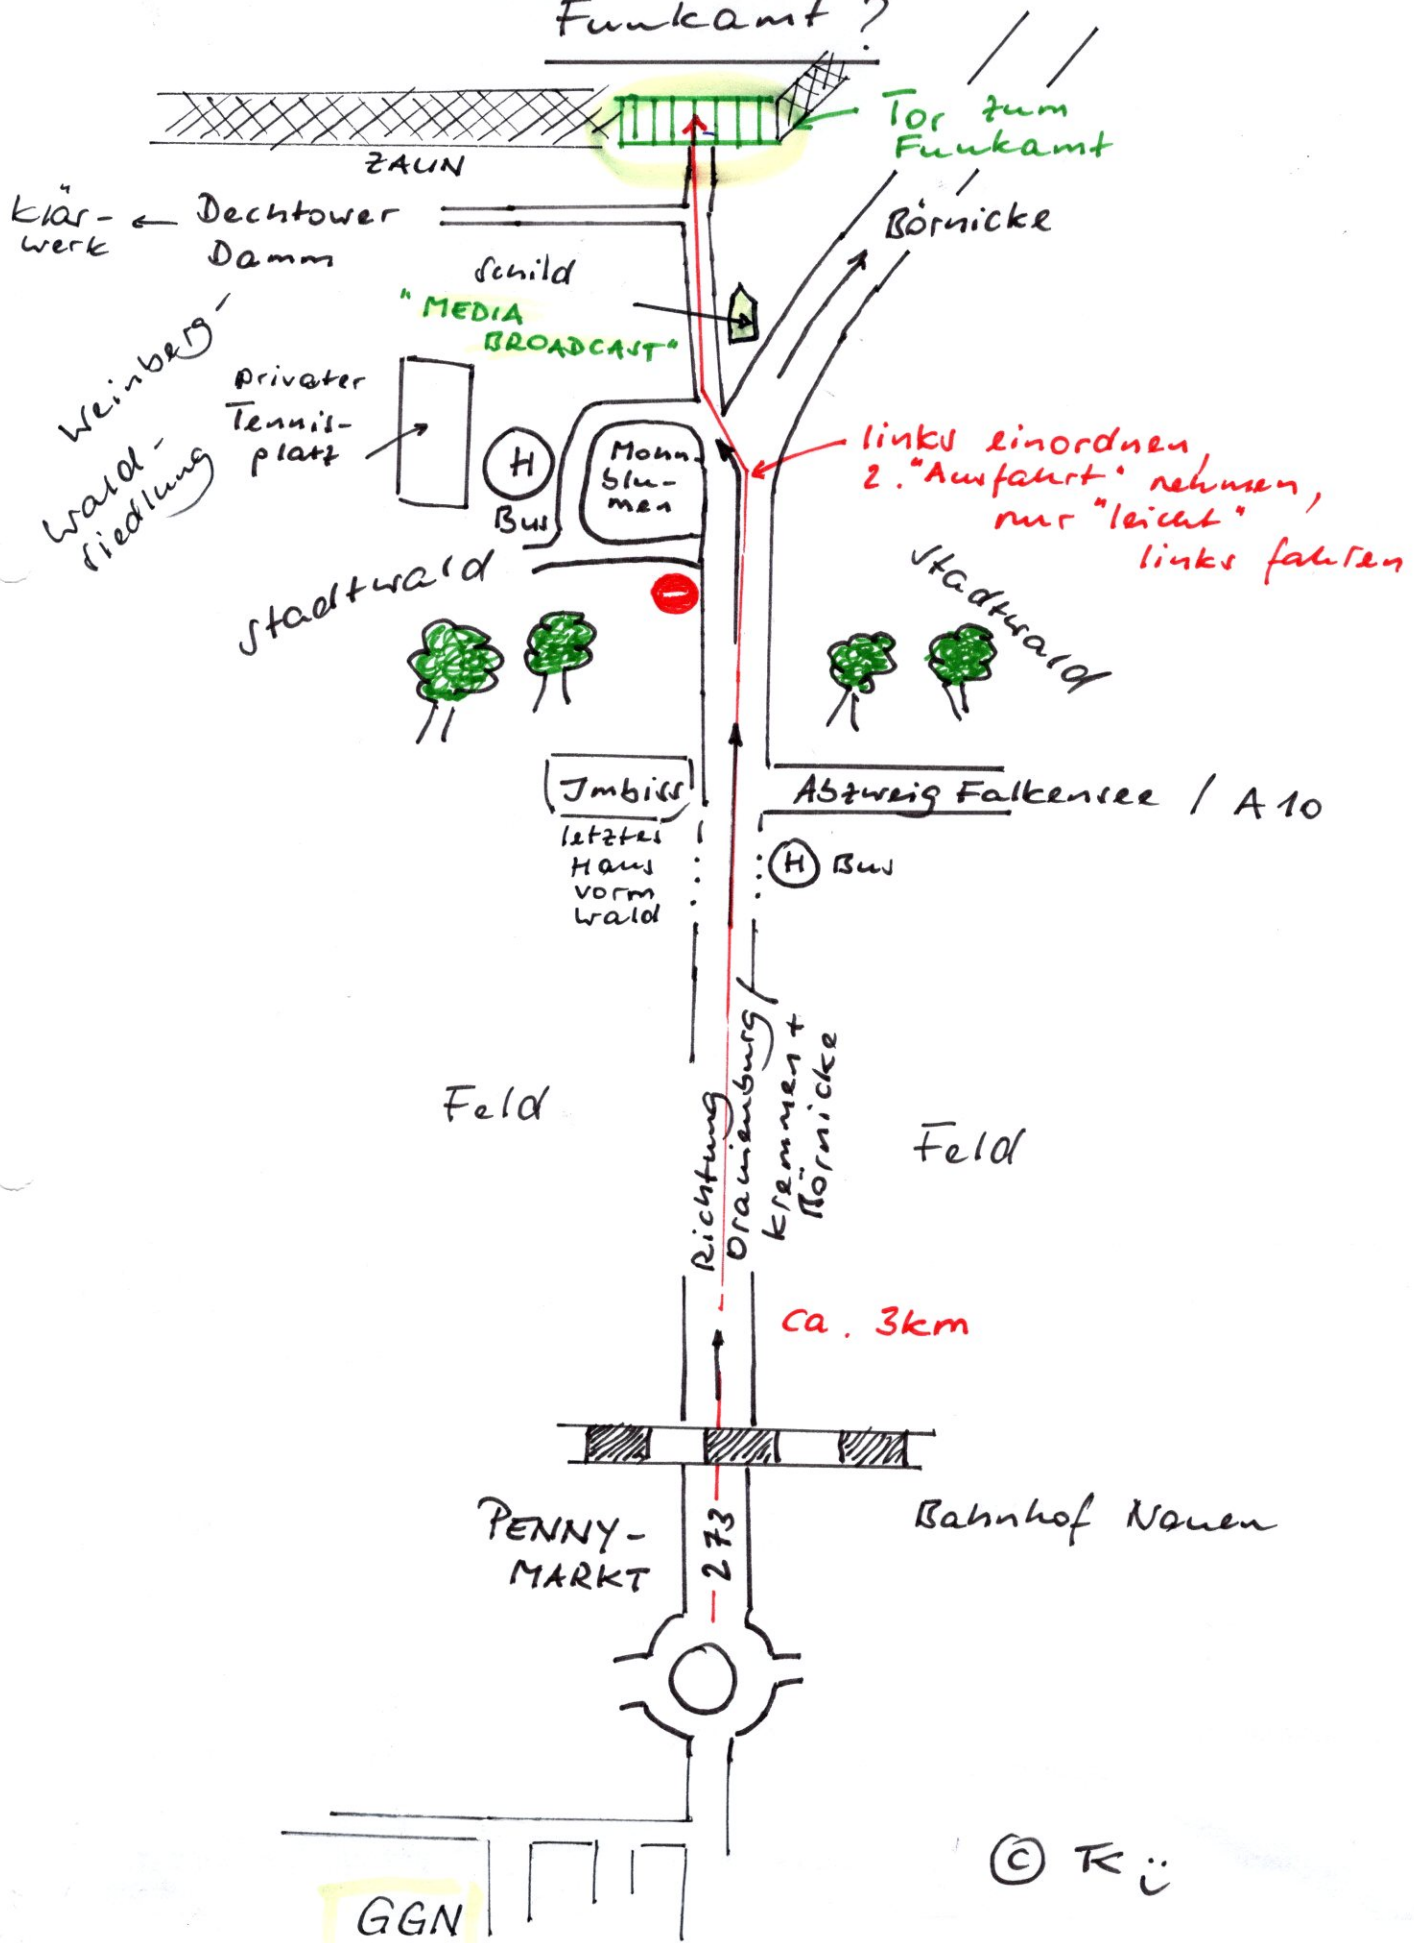 Funkamt?
Tor zum
Funkamt
ZAUN
Klär-
werk
← Dechtower
Damm
Börnicke
Schild
"MEDIA
BROADCAST"
Weinberg-
Wald-
siedlung
privater
Tennis-
platz
H
Bus
Mohn-
blu-
men
links einordnen,
2. "Ausfahrt" nehmen,
nur "leicht"
links fahren
Stadtwald
Stadtwald
Imbiss
letztes
Haus
vorm
Wald
Abzweig Falkensee / A 10
H Bus
Richtung
Oranienburg/
Kremmen +
Börnicke
Feld
Feld
ca. 3km
PENNY-
MARKT
273
Bahnhof Nauen
GGN
© TK